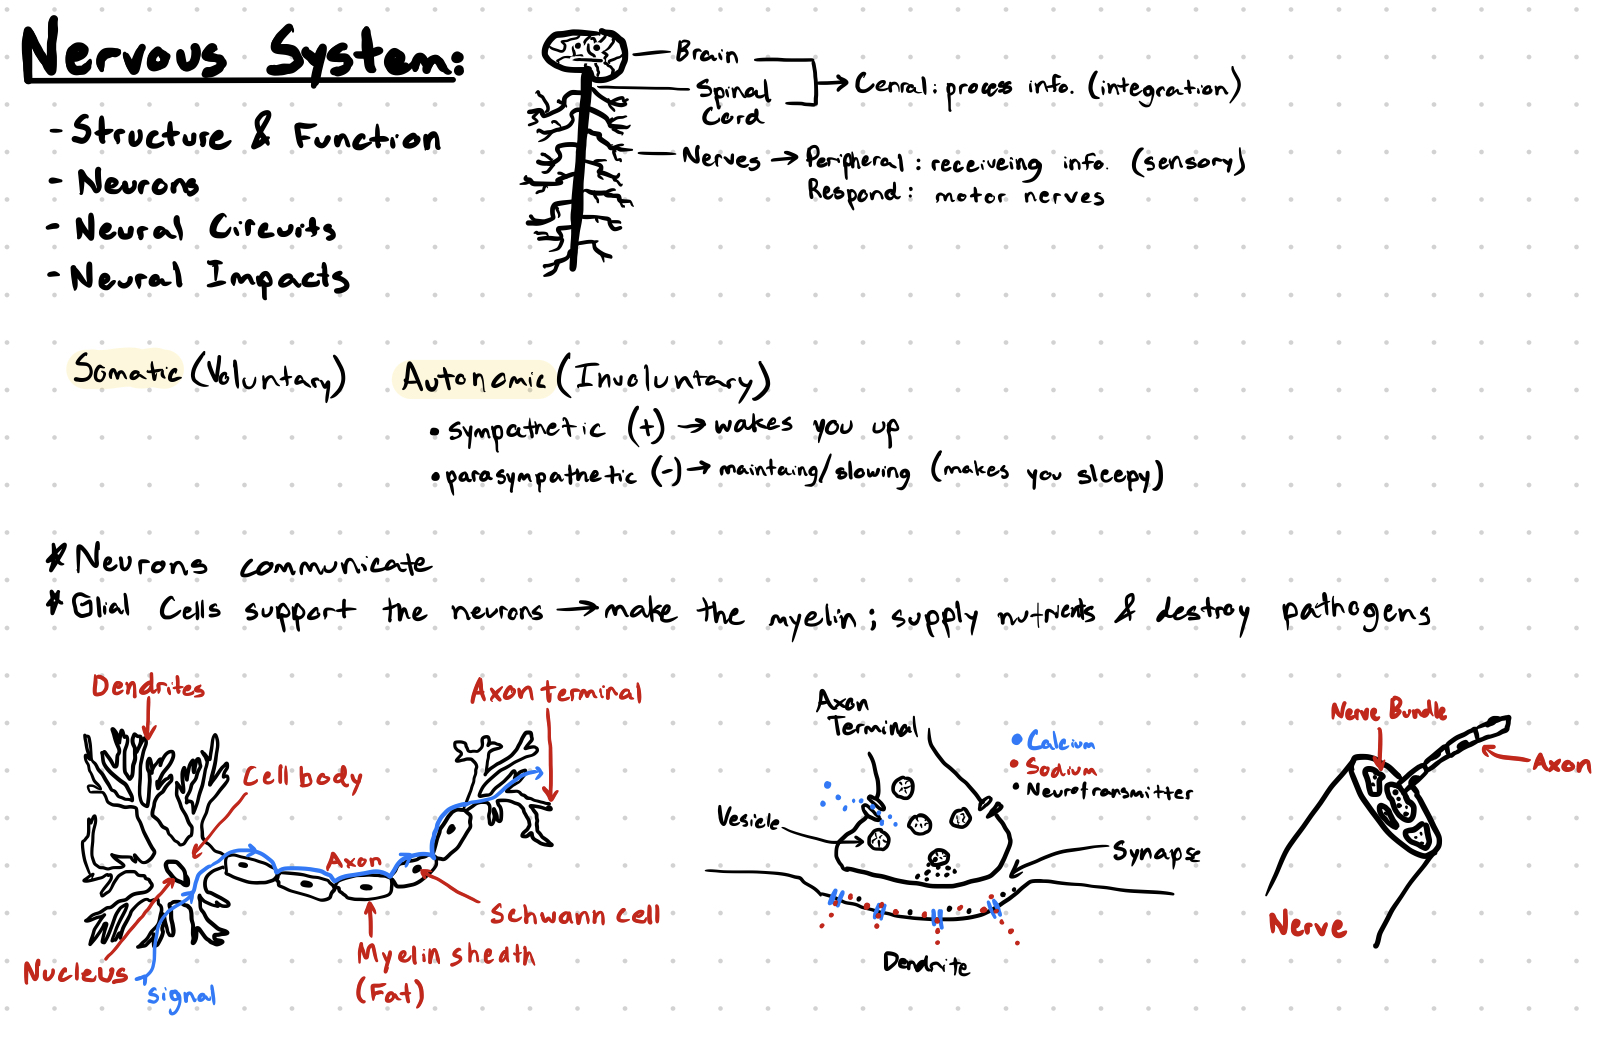 Nervous System:
- Structure & Function
- Neurons
- Neural Circuits
- Neural Impacts
Brain
Spinal
Cord
Cenral: process info. (integration)
Nerves → Peripheral: receiveing info. (sensory)
Respond: motor nerves
Somatic (Voluntary)
Autonomic (Involuntary)
• sympathetic (+) → wakes you up
• parasympathetic (-) → maintaing/slowing (makes you sleepy)
* Neurons communicate
* Glial Cells support the neurons → make the myelin; supply nutrients & destroy pathogens
Dendrites
Cell body
Axon terminal
Axon
Schwann cell
Myelin sheath
(Fat)
Nucleus
signal
Axon
Terminal
• Calcium
• Sodium
• Neurotransmitter
Vesicle
Synapse
Dendrite
Nerve Bundle
Axon
Nerve